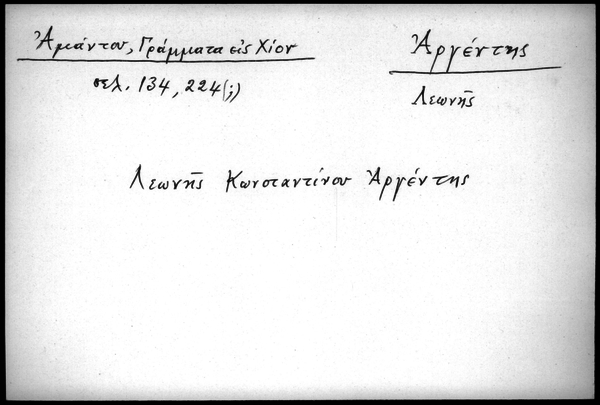 Ἀμάντου, Γράμματα εἰς Χίον
σελ. 134, 224(;)
Ἀργέντης
Λεωνῆς
Λεωνῆς Κωνσταντίνου Ἀργέντης